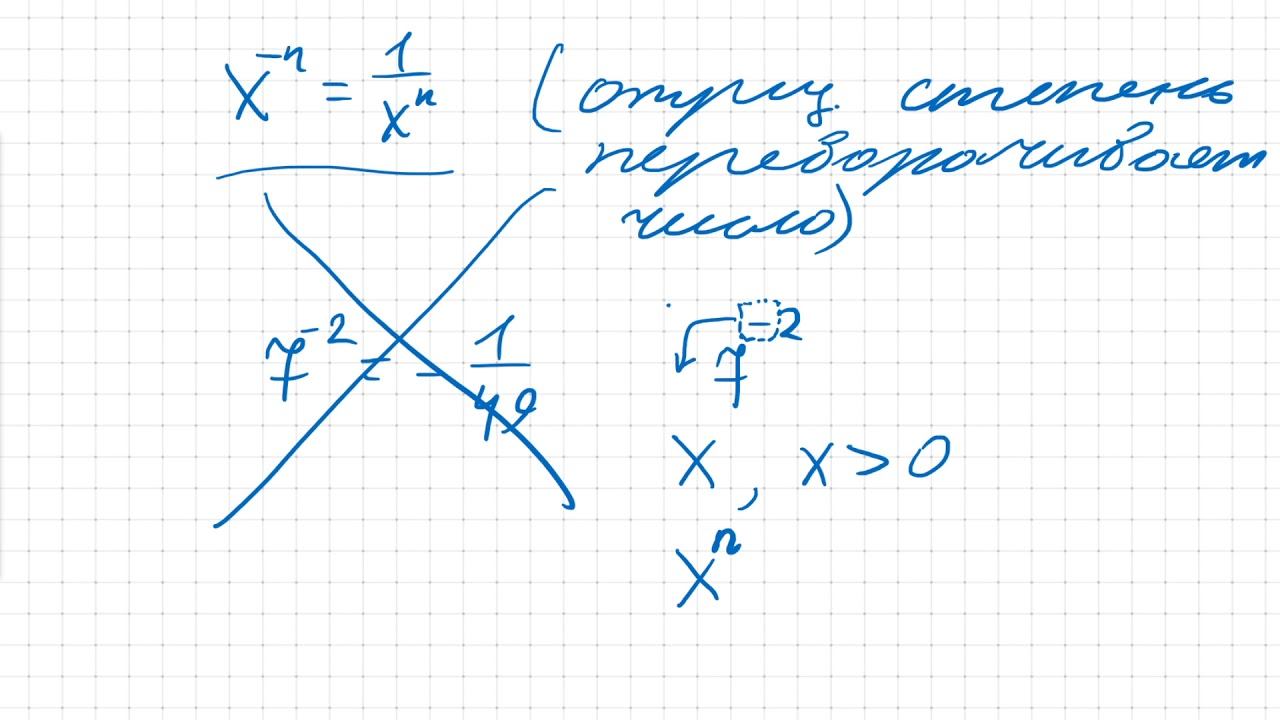 x⁻ⁿ = 1/xⁿ (отриц. степень
переворачивает
число)
7⁻² = = 1/49
7⁻²
x, x > 0
xⁿ